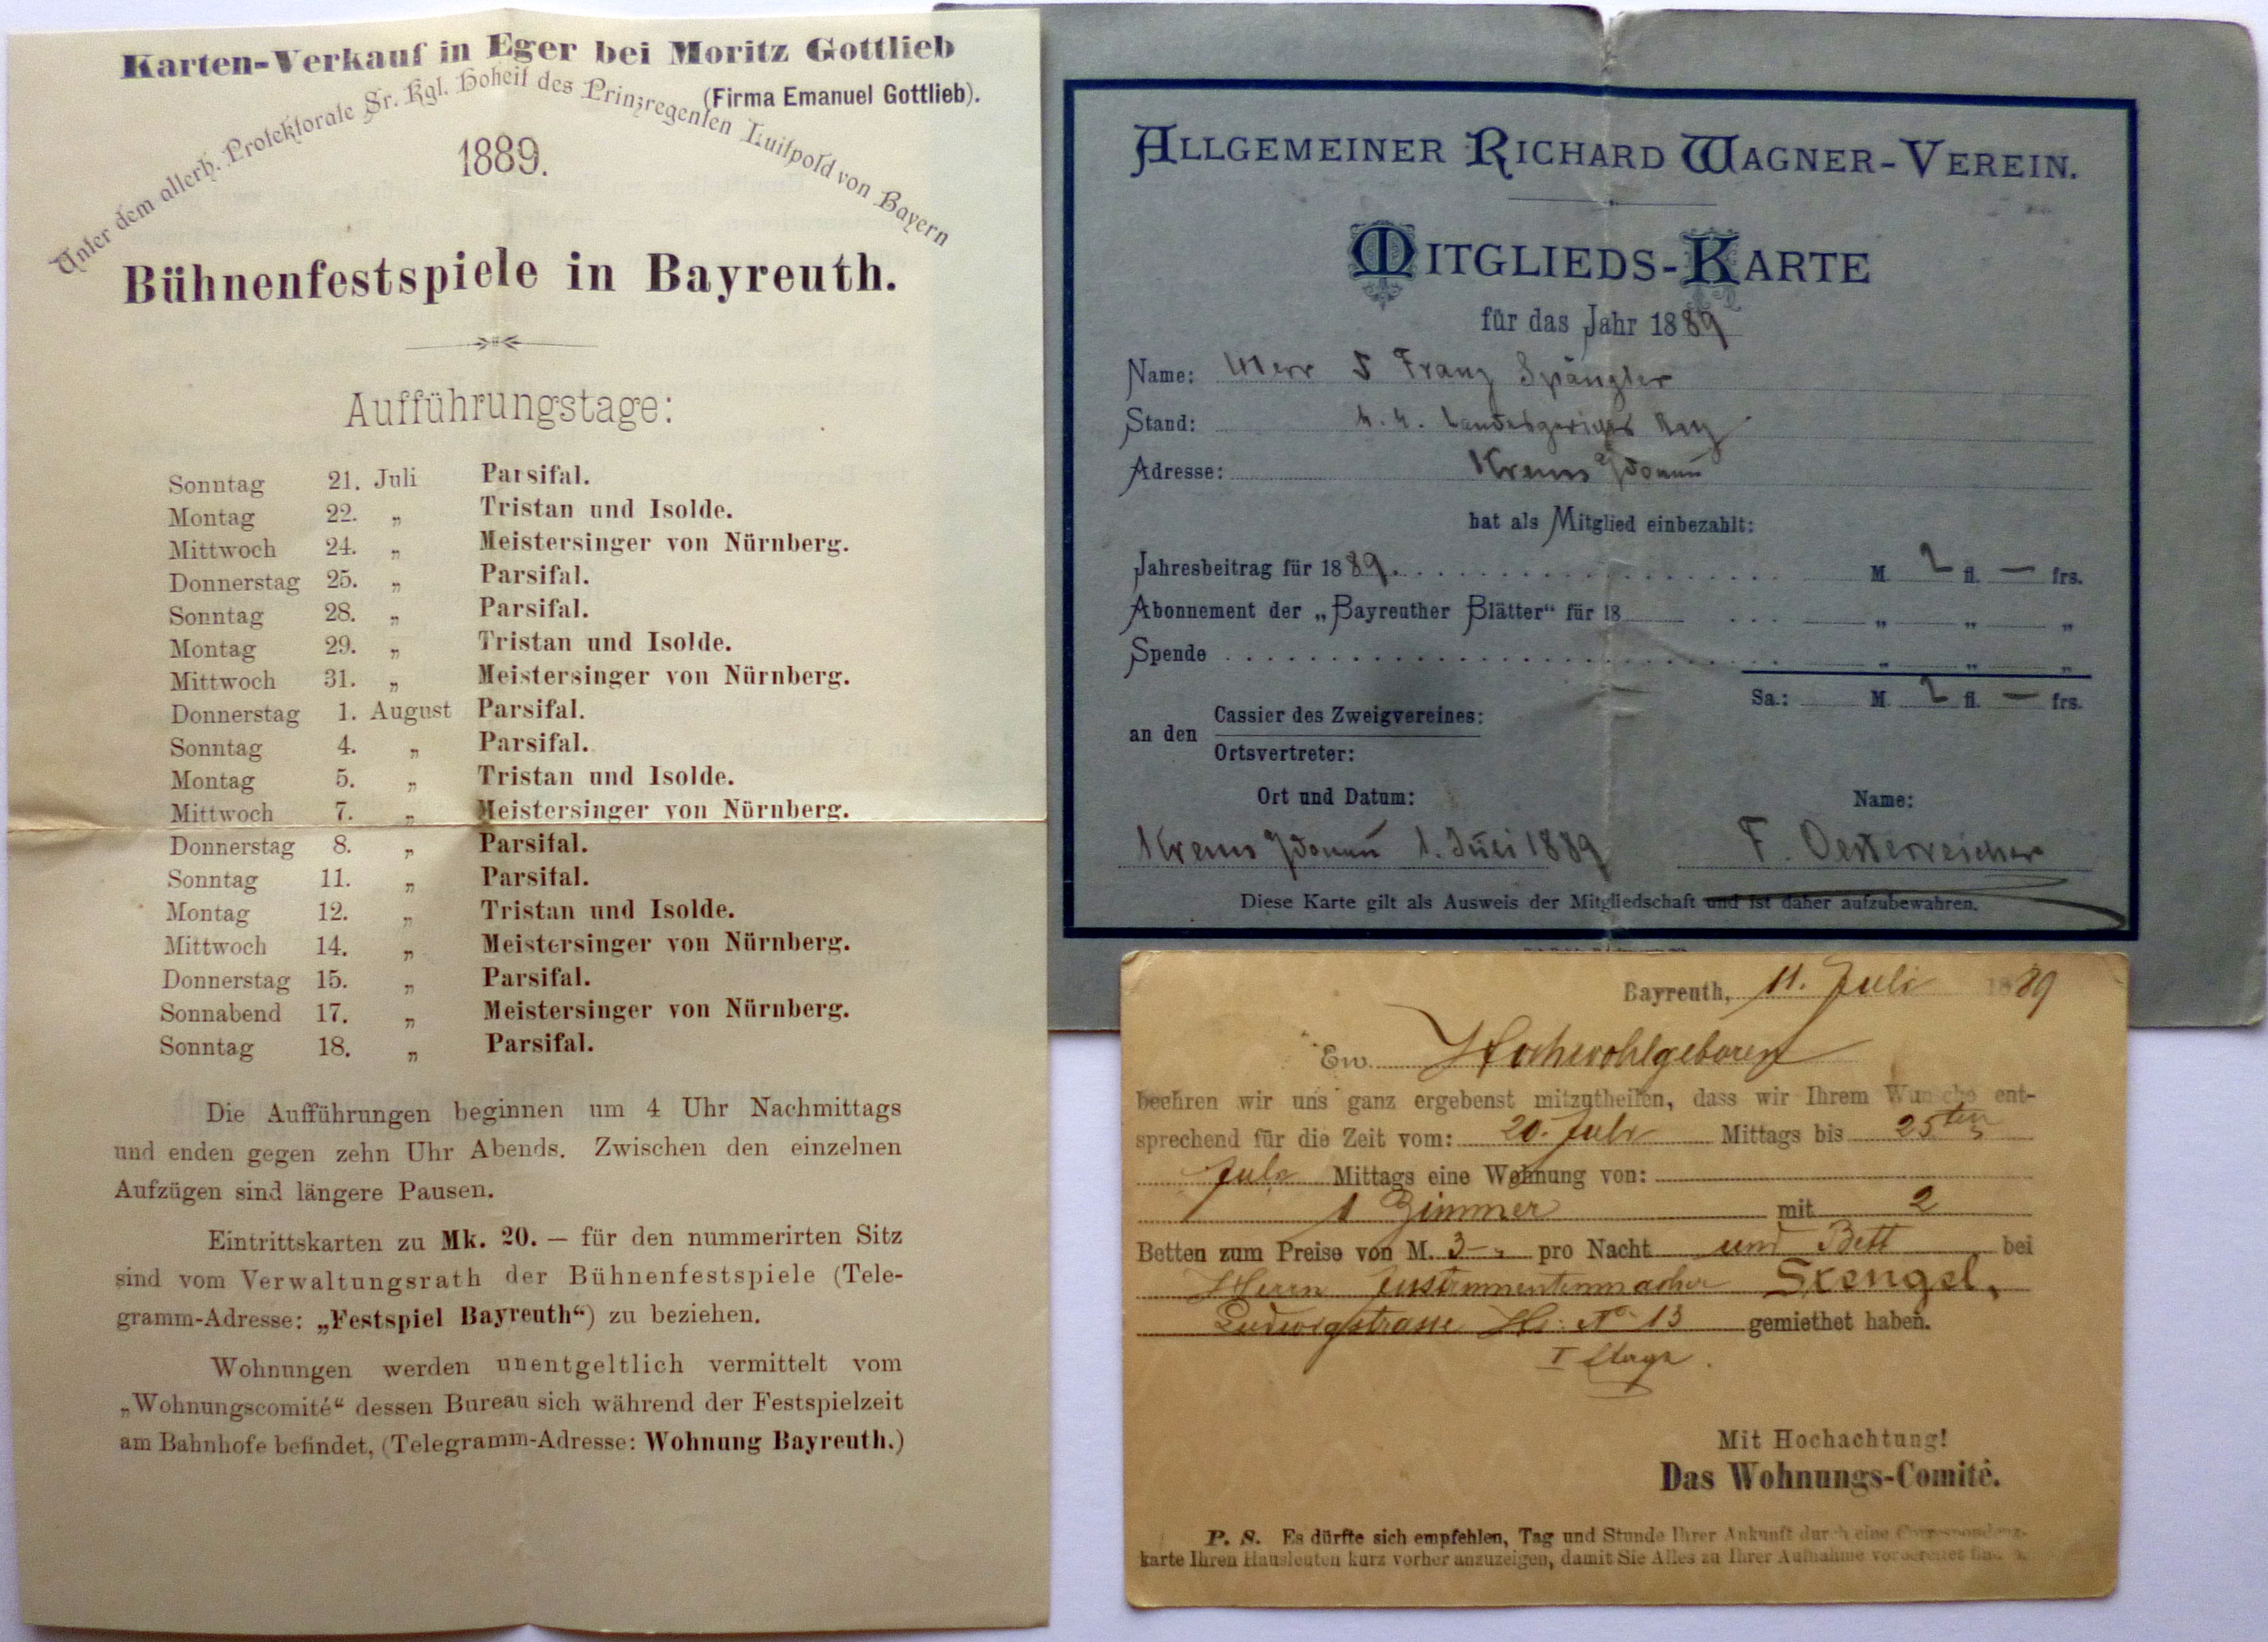 Karten-Verkauf in Eger bei Moritz Gottlieb
(Firma Emanuel Gottlieb).
Unter dem allerh. Protektorate Sr. Kgl. Hoheit des Prinzregenten Luitpold von Bayern
1889.
Bühnenfestspiele in Bayreuth.
Aufführungstage:
Sonntag 21. Juli Parsifal.
Montag 22. „ Tristan und Isolde.
Mittwoch 24. „ Meistersinger von Nürnberg.
Donnerstag 25. „ Parsifal.
Sonntag 28. „ Parsifal.
Montag 29. „ Tristan und Isolde.
Mittwoch 31. „ Meistersinger von Nürnberg.
Donnerstag 1. August Parsifal.
Sonntag 4. „ Parsifal.
Montag 5. „ Tristan und Isolde.
Mittwoch 7. „ Meistersinger von Nürnberg.
Donnerstag 8. „ Parsifal.
Sonntag 11. „ Parsifal.
Montag 12. „ Tristan und Isolde.
Mittwoch 14. „ Meistersinger von Nürnberg.
Donnerstag 15. „ Parsifal.
Sonnabend 17. „ Meistersinger von Nürnberg.
Sonntag 18. „ Parsifal.
Die Aufführungen beginnen um 4 Uhr Nachmittags
und enden gegen zehn Uhr Abends. Zwischen den einzelnen
Aufzügen sind längere Pausen.
Eintrittskarten zu Mk. 20. — für den nummerirten Sitz
sind vom Verwaltungsrath der Bühnenfestspiele (Tele-
gramm-Adresse: „Festspiel Bayreuth“) zu beziehen.
Wohnungen werden unentgeltlich vermittelt vom
„Wohnungscomité“ dessen Bureau sich während der Festspielzeit
am Bahnhofe befindet, (Telegramm-Adresse: Wohnung Bayreuth.)
ALLGEMEINER RICHARD WAGNER-VEREIN.
MITGLIEDS-KARTE
für das Jahr 1889
Name: Herr Franz Spängler
Stand: k. k. Landesgerichts Rath
Adresse: Krems
hat als Mitglied einbezahlt:
Jahresbeitrag für 1889. M. 2 fl. — frs.
Abonnement der „Bayreuther Blätter“ für 18 „ „ „
Spende „ „ „
Sa.: M. 2 fl. — frs.
an den Cassier des Zweigvereines:
Ortsvertreter:
Ort und Datum: Name:
Krems 1. Juli 1889 F. Oesterreicher
Diese Karte gilt als Ausweis der Mitgliedschaft und ist daher aufzubewahren.
Bayreuth, 11. Juli 1889
Ew. Hochwohlgeboren
beehren wir uns ganz ergebenst mitzutheilen, dass wir Ihrem Wunsche ent-
sprechend für die Zeit vom: 20. Juli Mittags bis 25ten
Juli Mittags eine Wohnung von:
1 Zimmer mit 2
Betten zum Preise von M. 3 — pro Nacht und Bett bei
Herrn Instrumentenmacher Stengel,
Ludwigstrasse Hs. No 13 gemiethet haben.
I Etage.
Mit Hochachtung!
Das Wohnungs-Comité.
P. S. Es dürfte sich empfehlen, Tag und Stunde Ihrer Ankunft durch eine Correspondenz-
karte Ihren Hausleuten kurz vorher anzuzeigen, damit Sie Alles zu Ihrer Aufnahme vorbereitet